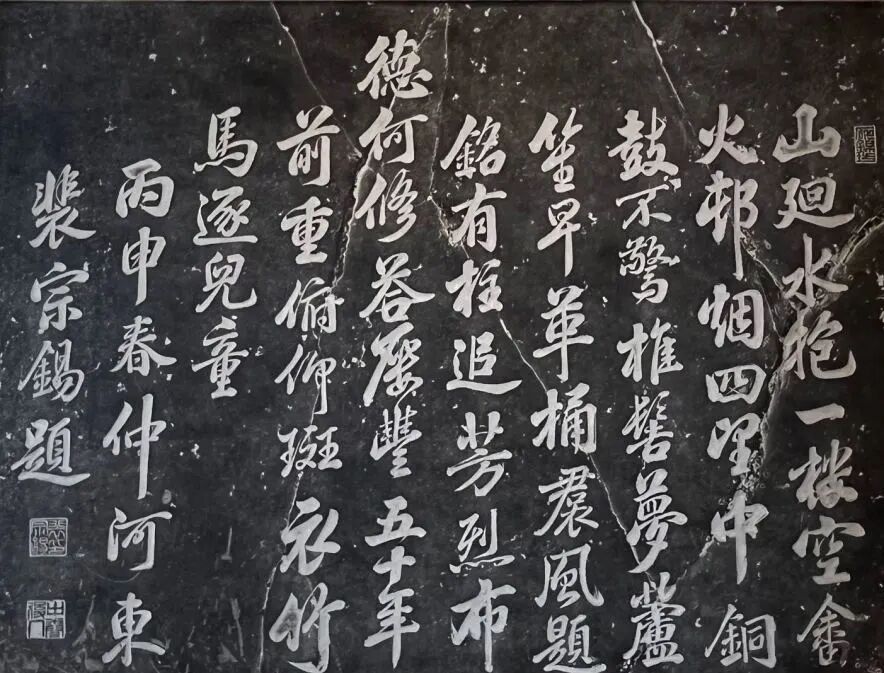 山廻水抱一樓空畬
火邨烟四望中銅
鼓不驚椎髻夢蘆
笙早革桶裠風題
銘有柱追芳烈布
德何修荅屢豐五十年
前重俯仰斑衣竹
馬逐兒童
丙申春仲河東
裴宗錫題